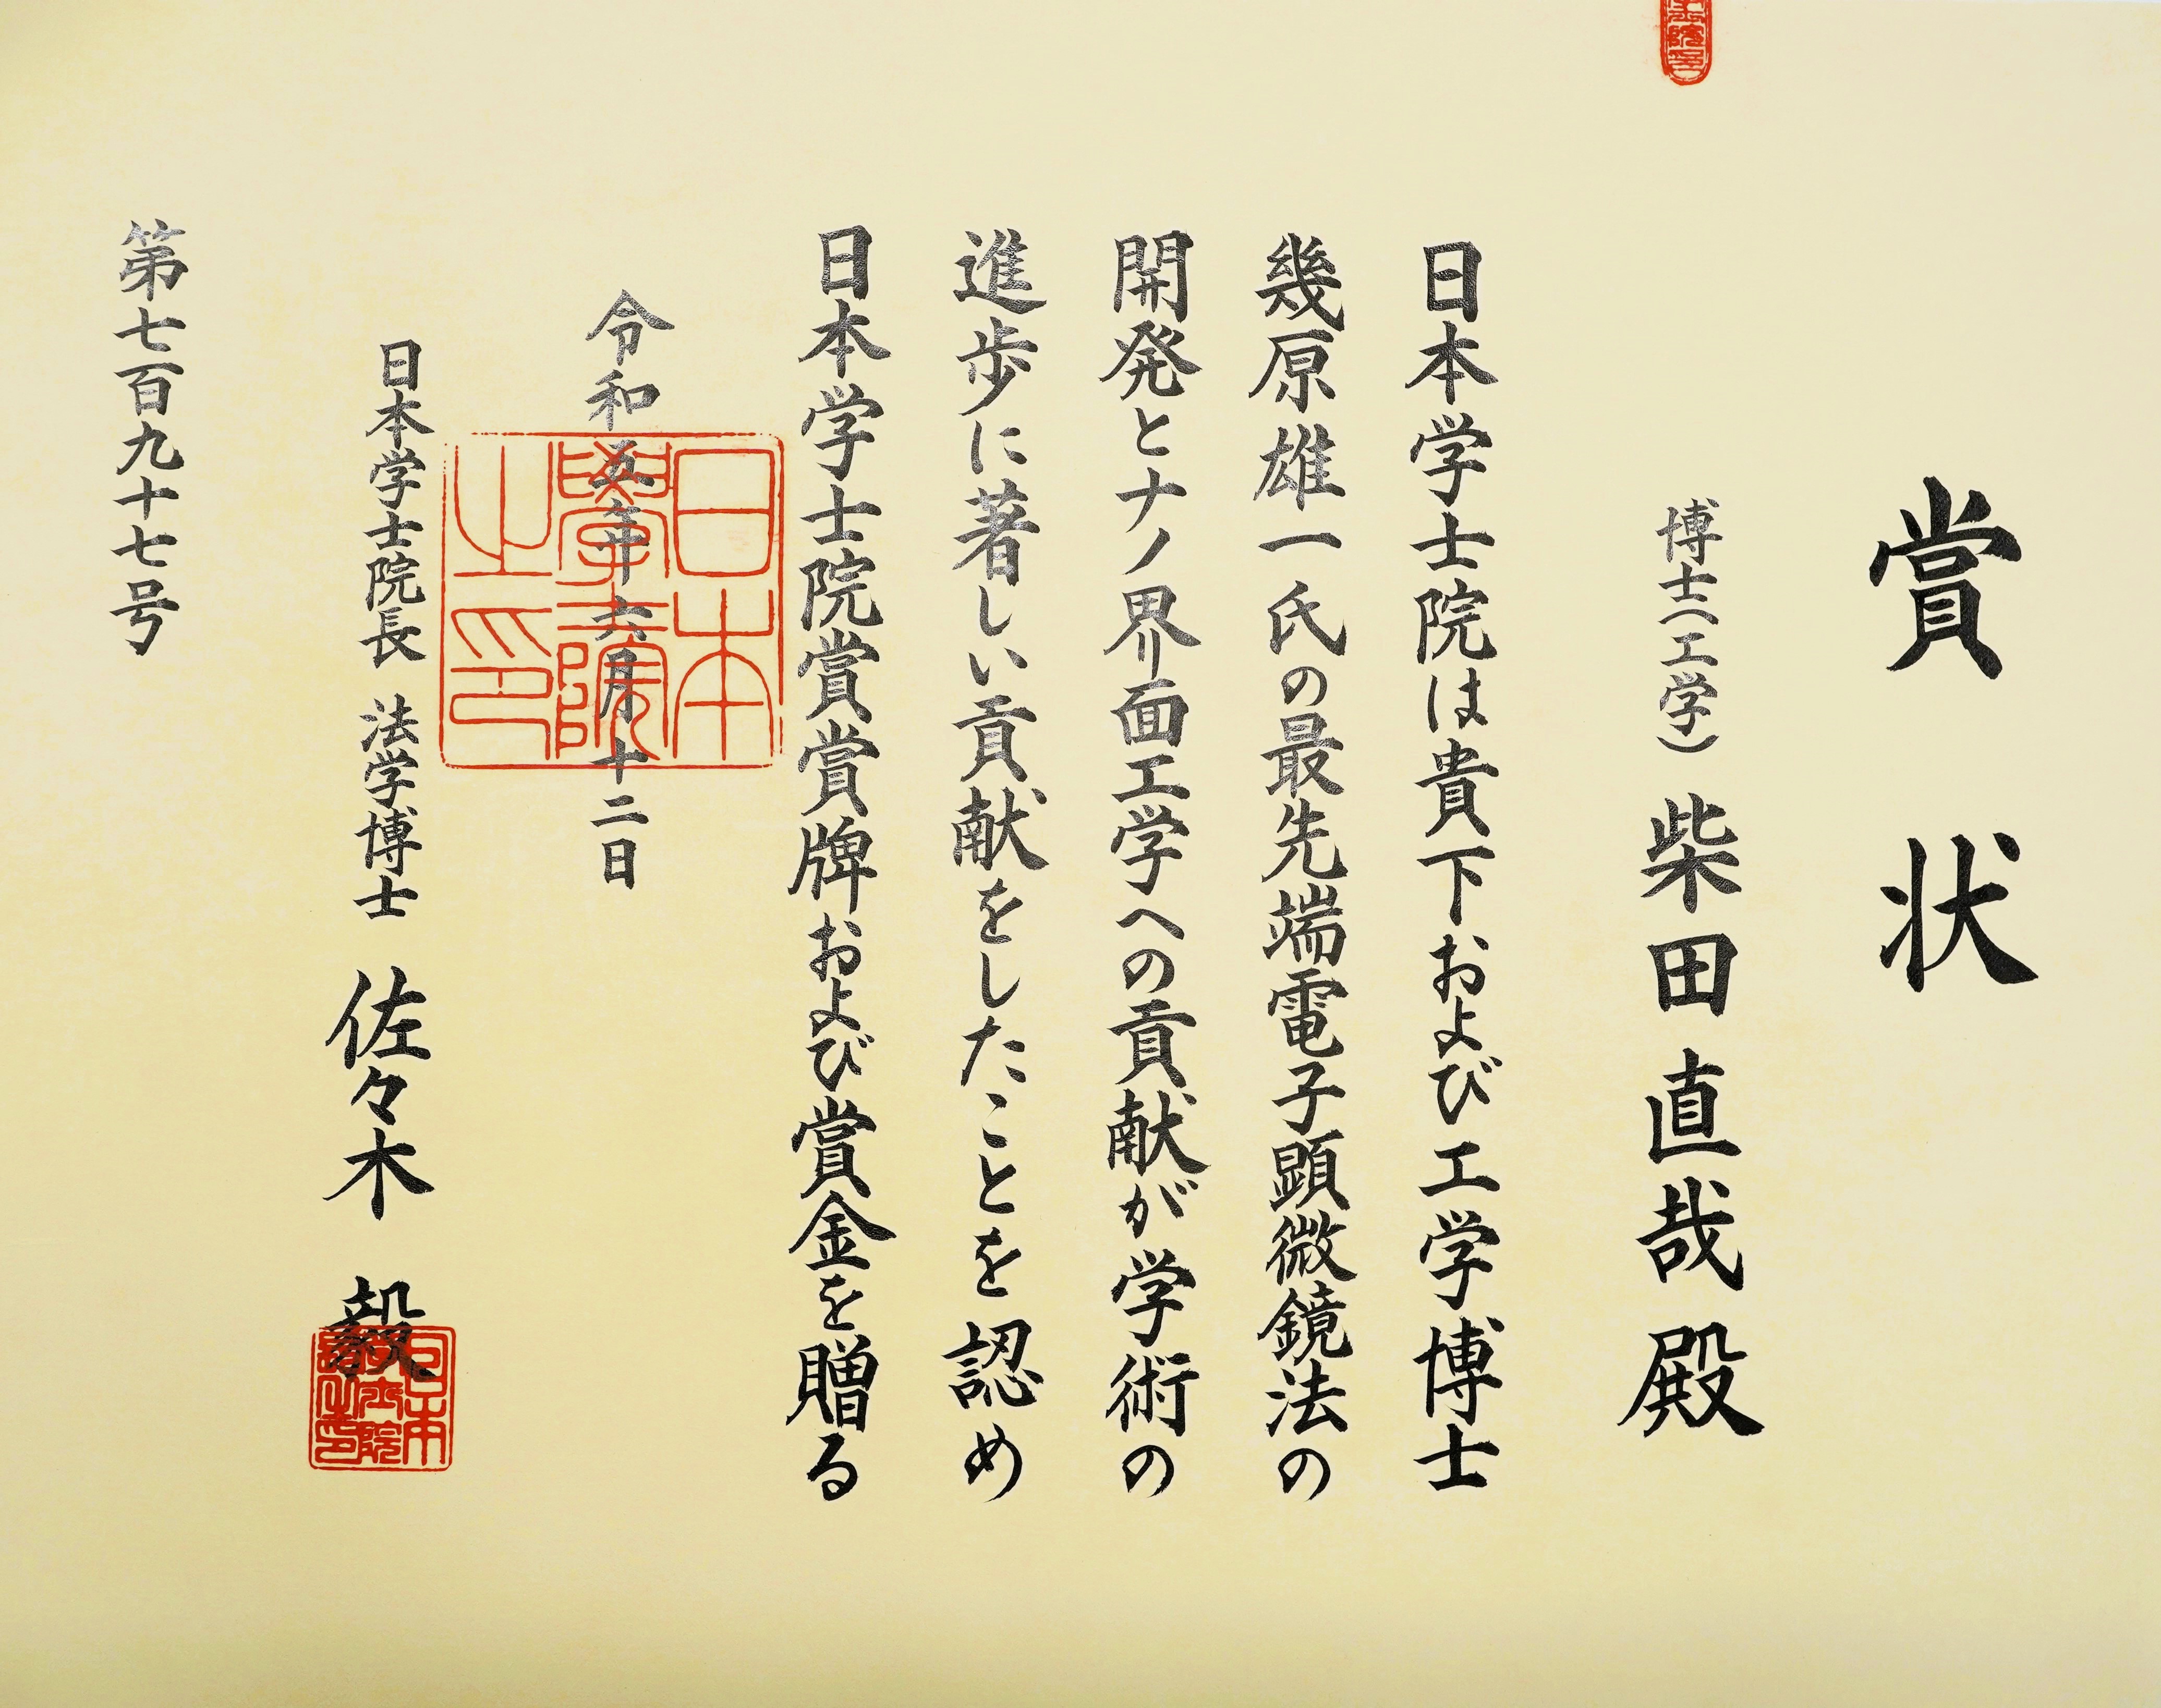 賞状
博士(工学) 柴田直哉殿
日本学士院は貴下および工学博士
幾原雄一氏の最先端電子顕微鏡法の
開発とナノ界面工学への貢献が学術の
進歩に著しい貢献をしたことを認め
日本学士院賞賞牌および賞金を贈る
令和五年六月十二日
日本學士院之印
日本学士院長 法学博士 佐々木 毅
第七百九十七号